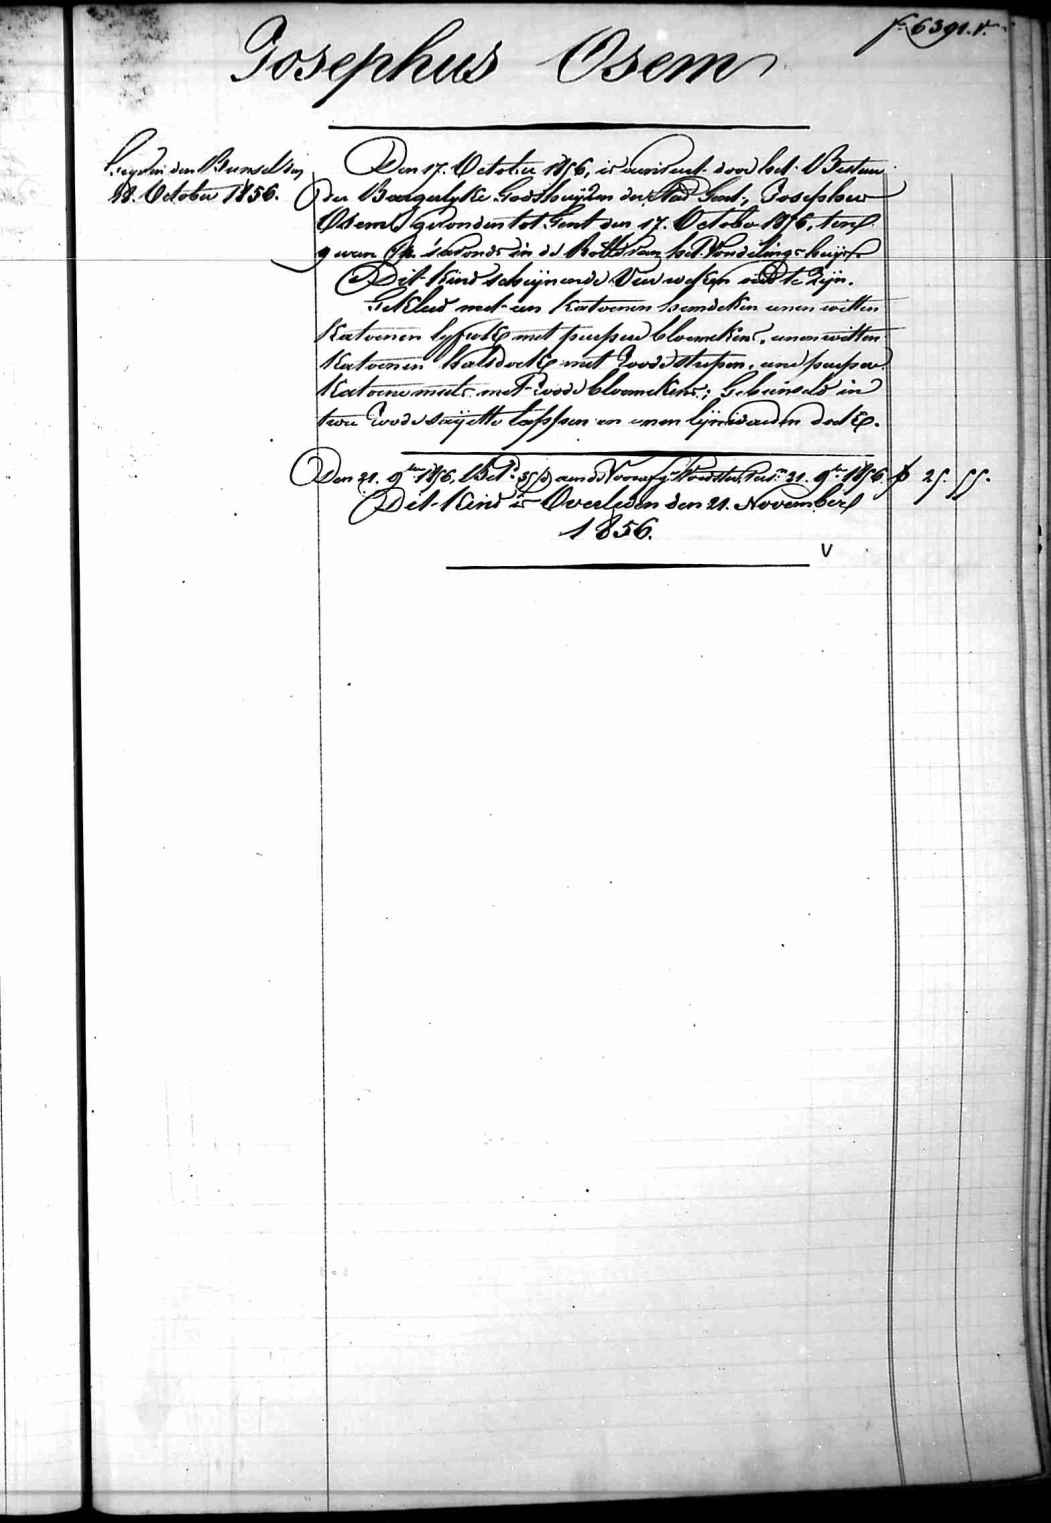 fo 6391. vo
Josephus Osem
den
28. October 1856.
Den 17. October 1856, is aenveert door het Bestuur
der Burgerlyke Godshuyzen der Stad Gent, Josephus
Osem, gevonden tot Gent den 17. October 1856, ten
9 uren savonds in de Rolle van het Vondelingshuys
Dit kind schynende vier weken oud te zyn.
Gekleed met een katoenen hemdeken eenen witten
katoenen lyfrok met purpere bloemekens, eenen witten
katoenen halsdoek met roode strepen, eene purpere
katoene muts met roode bloemekens; Gebuseld in
twee roode sayette lappen en eenen lynwaeden doek.
Den 21. 9ber 1856, Bet. aen de Voedster, 21. 9ber 1856 25. 55.
Dit Kind is Overleden den 21. November
1856.
V